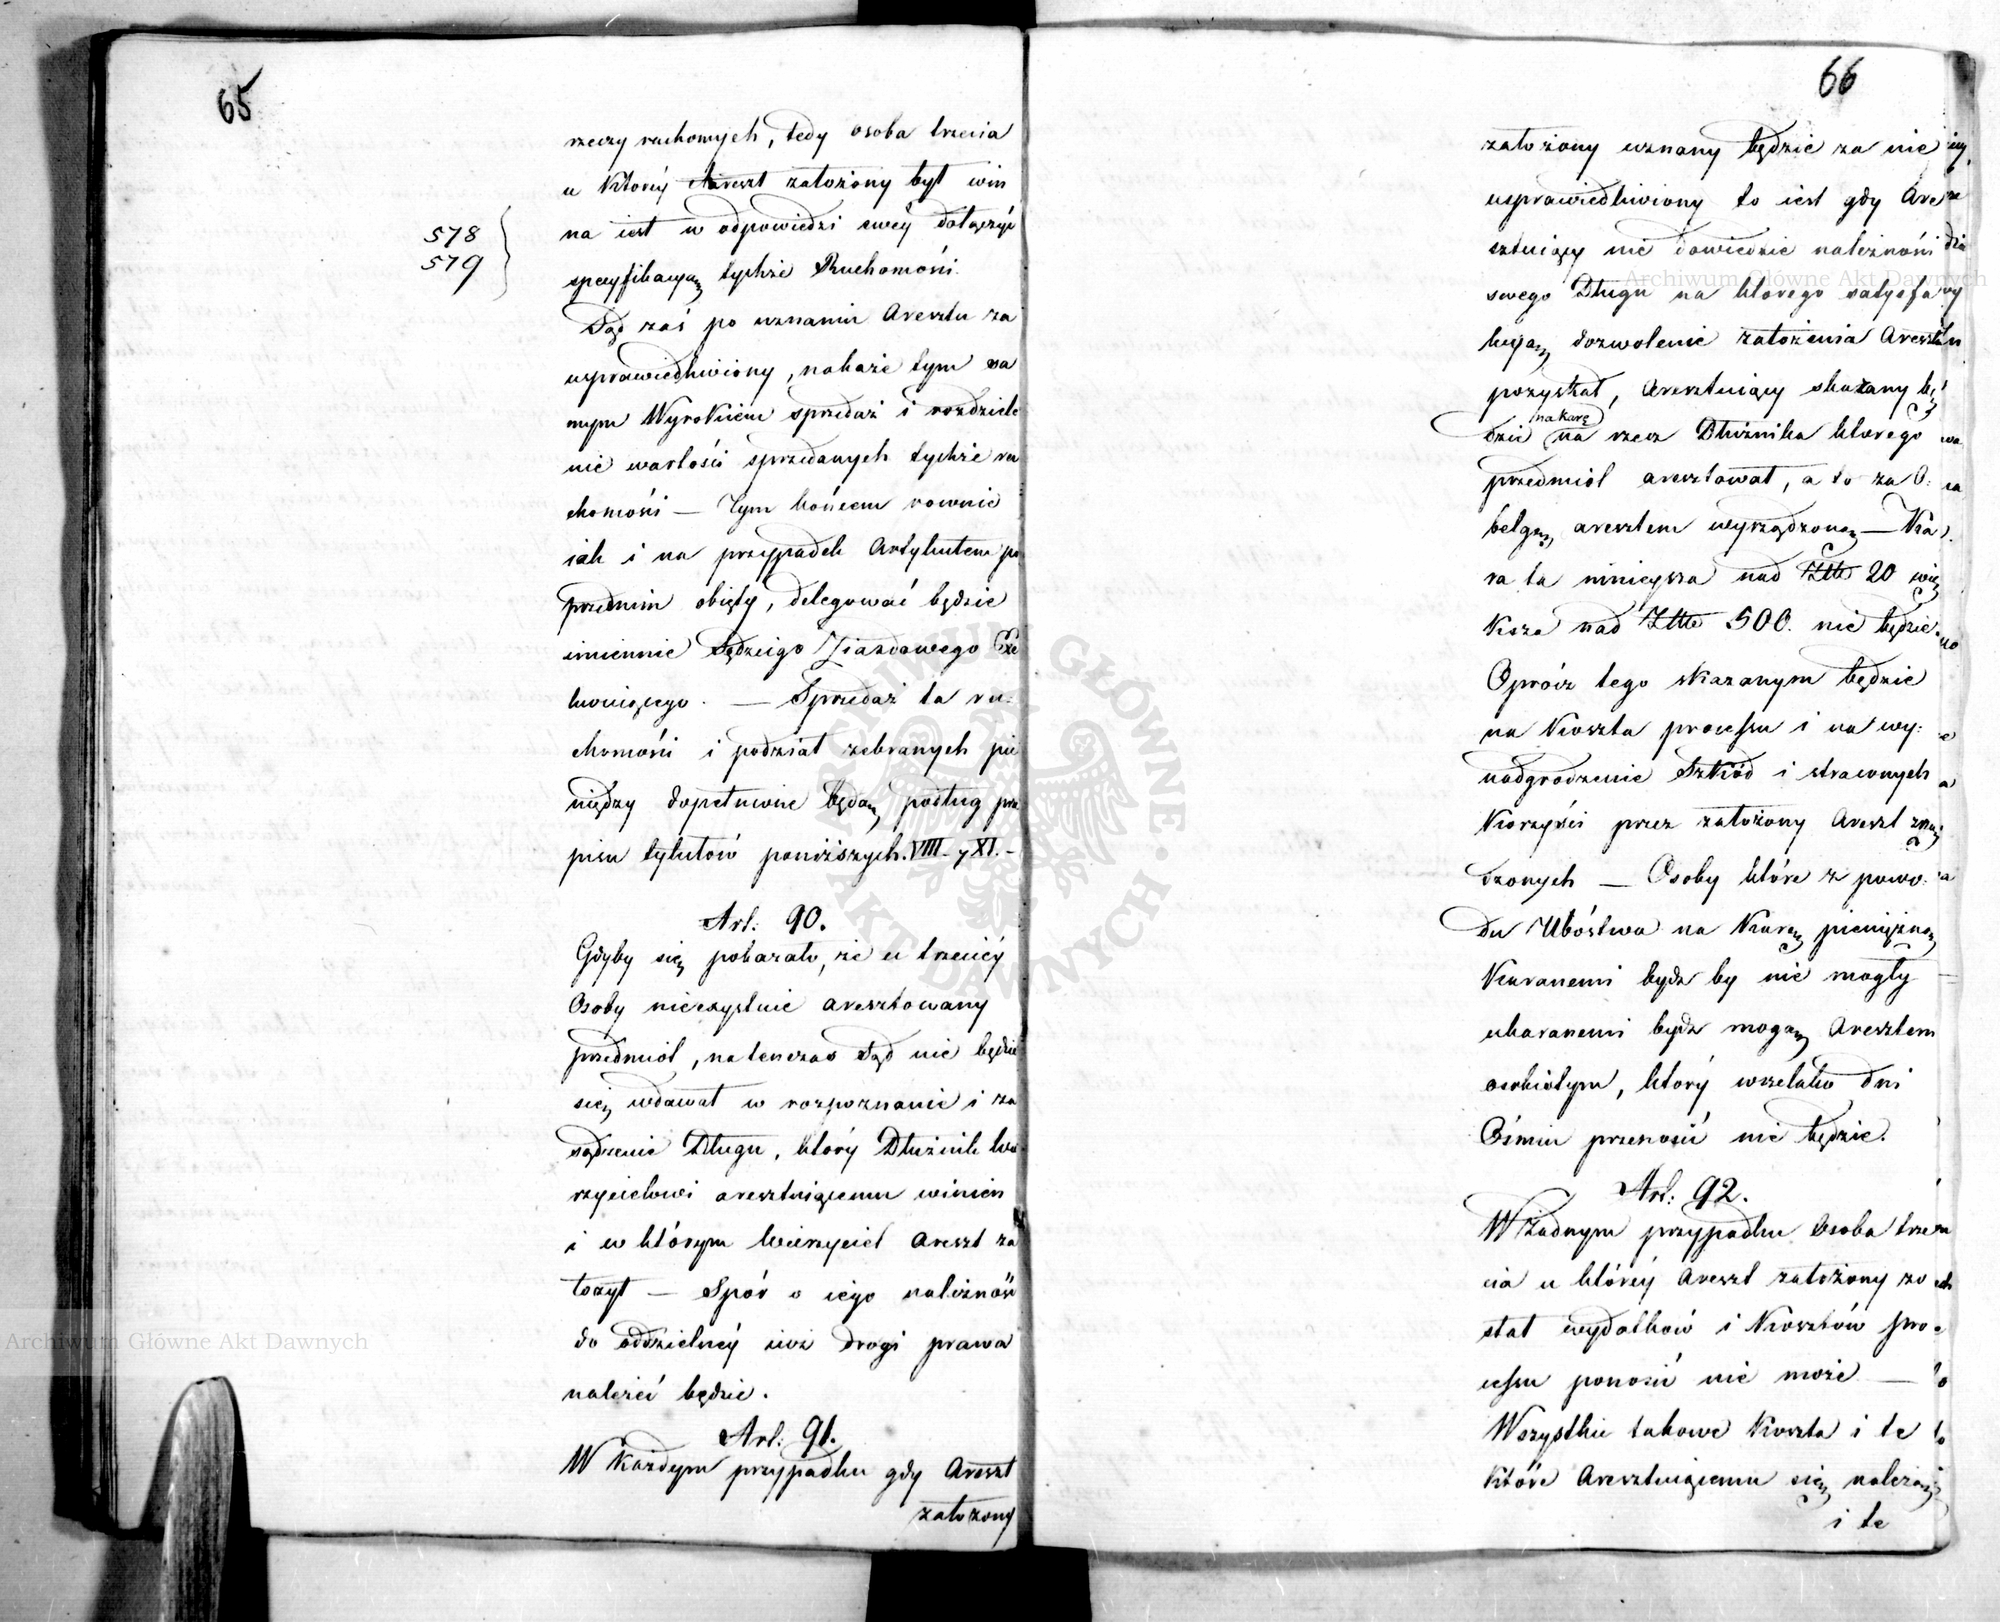 65
578
579
rzeczy ruchomych, tedy osoba trzecia
u ktorey Areszt założony był win
na iest w odpowiedzi swey dołączyć
specyfikacyą tychże Ruchomości.
Sąd zaś po uznaniu Aresztu za
usprawiedliwiony, nakaże tym sa
mym Wyrokiem sprzedaż i rozdziele
nie wartości sprzedanych tychże ru
chomości — Tym końcem rownie
iak i na przypadek Artykułem po
przednim obięty, delegować będzie
imiennie Sędziego Ziazdowego Exe
kwuiącego. — Sprzedaż ta ru:
chomości i podział zebranych pie
niędzy dopełnione będą podług prze
pisu tytułów poniższych. VIII. y XI. –
Art: 90.
Gdyby się pokazało, że u trzeciéy
Osoby nieczystnie aresztowany
przedmiot, natenczas Sąd nie będzie
się wdawał w rozpoznanie i za
sądzenie Długu, który Dłużnik Wie
rzycielowi aresztuiącemu winien
i w którym Wierzyciel Areszt za
łożył — Spór o iego należność
do oddzielnéy iuż drogi prawa
należeć będzie.
Art: 91.
W każdym przypadku gdy Areszt
założony
66
założony uznany będzie za nie
usprawiedliwiony to iest gdy Are
sztuiący nie dowiedzie należności
swego Długu na ktorego satysfa
kcyą dozwolenie założenia Aresztu
pozyskał, Aresztuiący skazany bę
na karę
dzie na rzecz Dłużnika ktorego
przedmiot aresztował, a to za O:
belgę, aresztem wyrządzoną — Ka
ra ta mnieysza nad Złło 20 wię
ksza nad Złło 500. nie będzie.
Oprócz tego skazanym będzie
na Koszta processu i na wy:
nadgrodzenie Szkód i strawnych
Korzyści przez założony Areszt zrzą
dzonych — Osoby które z powo
du Ubóstwa na Karę pieniężną
Karanemi bydź by nie mogły
ukaranemi bydź mogą Aresztem
osobistym, który wszelako dni
Ośmiu przenosić nie będzie.
Art: 92.
W żadnym przypadku Osoba trze
cia u któréy Areszt założony zo
stał wydatków i Kosztów pro=
cessu ponosić nie może —
Wszystkie takowe Koszta i te
które Aresztuiącemu się należą
i te
Archiwum Główne Akt Dawnych
Archiwum Główne Akt Dawnych
ARCHIWUM GŁÓWNE • AKT DAWNYCH •